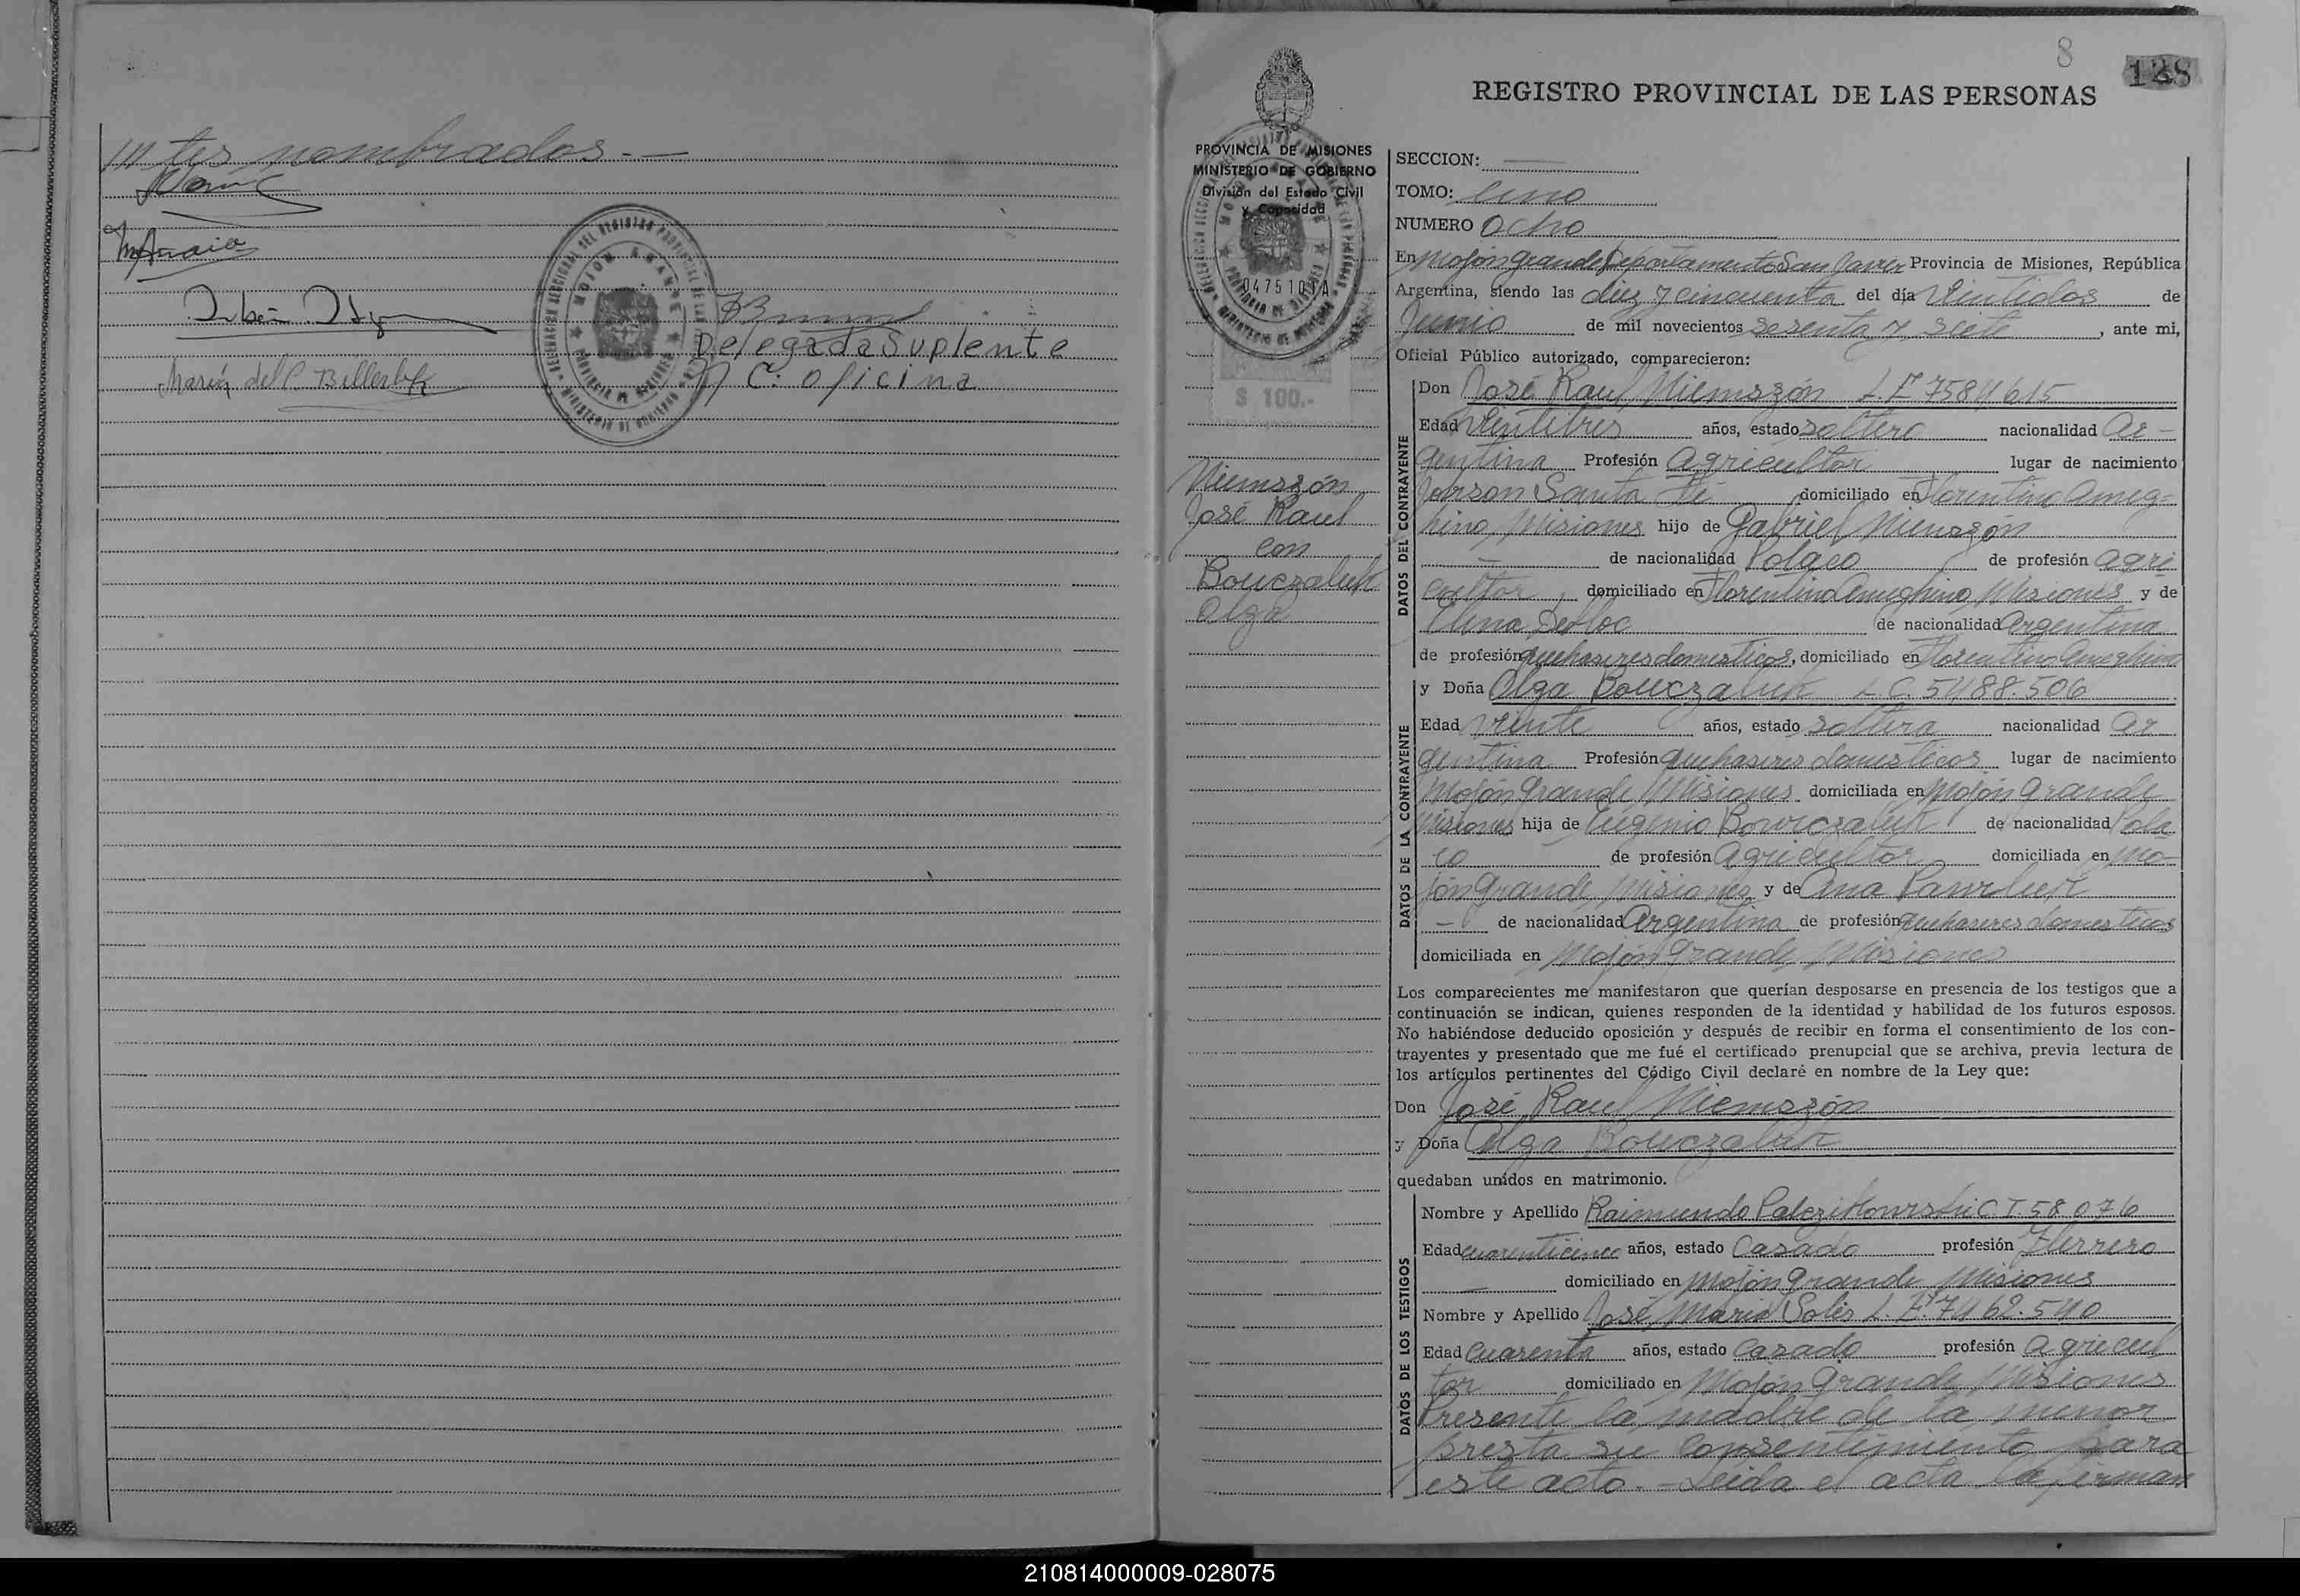 tes nombrados. —
Rubén
María del C. Billerbeck
Delegada Suplente
A C: oficina
8
128
REGISTRO PROVINCIAL DE LAS PERSONAS
PROVINCIA DE MISIONES
MINISTERIO DE GOBIERNO
División del Estado Civil
y Capacidad
$ 100.-
Niemszón
José Raul
con
Bouczaluk
Olga
SECCION: —
TOMO: Uno
NUMERO Ocho
En Mojón Grande Departamento San Javier Provincia de Misiones, República
Argentina, siendo las diez y cincuenta del día Veintidos de
Junio de mil novecientos sesenta y siete, ante mi,
Oficial Público autorizado, comparecieron:
DATOS DEL CONTRAYENTE
Don José Raul Niemszón L.E 7584615
Edad Veintitres años, estado soltero nacionalidad Ar-
gentina Profesión Agricultor lugar de nacimiento
Santa Fé domiciliado en Florentino Ameg-
hino, Misiones hijo de Gabriel Niemszón
— de nacionalidad Polaco de profesión agri
cultor, domiciliado en Florentino Ameghino, Misiones y de
Elena de nacionalidad Argentina
de profesión quehaseres domesticos, domiciliado en Florentino Ameghino
DATOS DE LA CONTRAYENTE
y Doña Olga Bouczaluk L.C. 5488.506
Edad veinte años, estado soltera nacionalidad Ar
gentina Profesión quehaseres domesticos lugar de nacimiento
Mojón Grande Misiones domiciliada en Mojón Grande
Misiones hija de Eugenio Bowczaluk de nacionalidad Pola
co de profesión Agricultor domiciliada en Mo-
jón Grande, Misiones y de Ana Pawluk
— de nacionalidad Argentina de profesión quehaseres domesticos
domiciliada en Mojón Grande, Misiones
Los comparecientes me manifestaron que querían desposarse en presencia de los testigos que a
continuación se indican, quienes responden de la identidad y habilidad de los futuros esposos.
No habiéndose deducido oposición y después de recibir en forma el consentimiento de los con-
trayentes y presentado que me fué el certificado prenupcial que se archiva, previa lectura de
los artículos pertinentes del Código Civil declaré en nombre de la Ley que:
Don José Raul Niemszón
y Doña Olga Bouczaluk
quedaban unidos en matrimonio.
DATOS DE LOS TESTIGOS
Nombre y Apellido Raimundo C.I. 58.076
Edad cuarenticinco años, estado Casado profesión Herrero
— domiciliado en Mojón Grande Misiones
Nombre y Apellido José Maria Solis L.E. 7462.540
Edad Cuarenta años, estado Casado profesión Agricul
tor domiciliado en Mojón Grande, Misiones
Presente la madre de la menor
presta su consentimiento para
este acto. - Leida el acta la firman
210814000009-028075